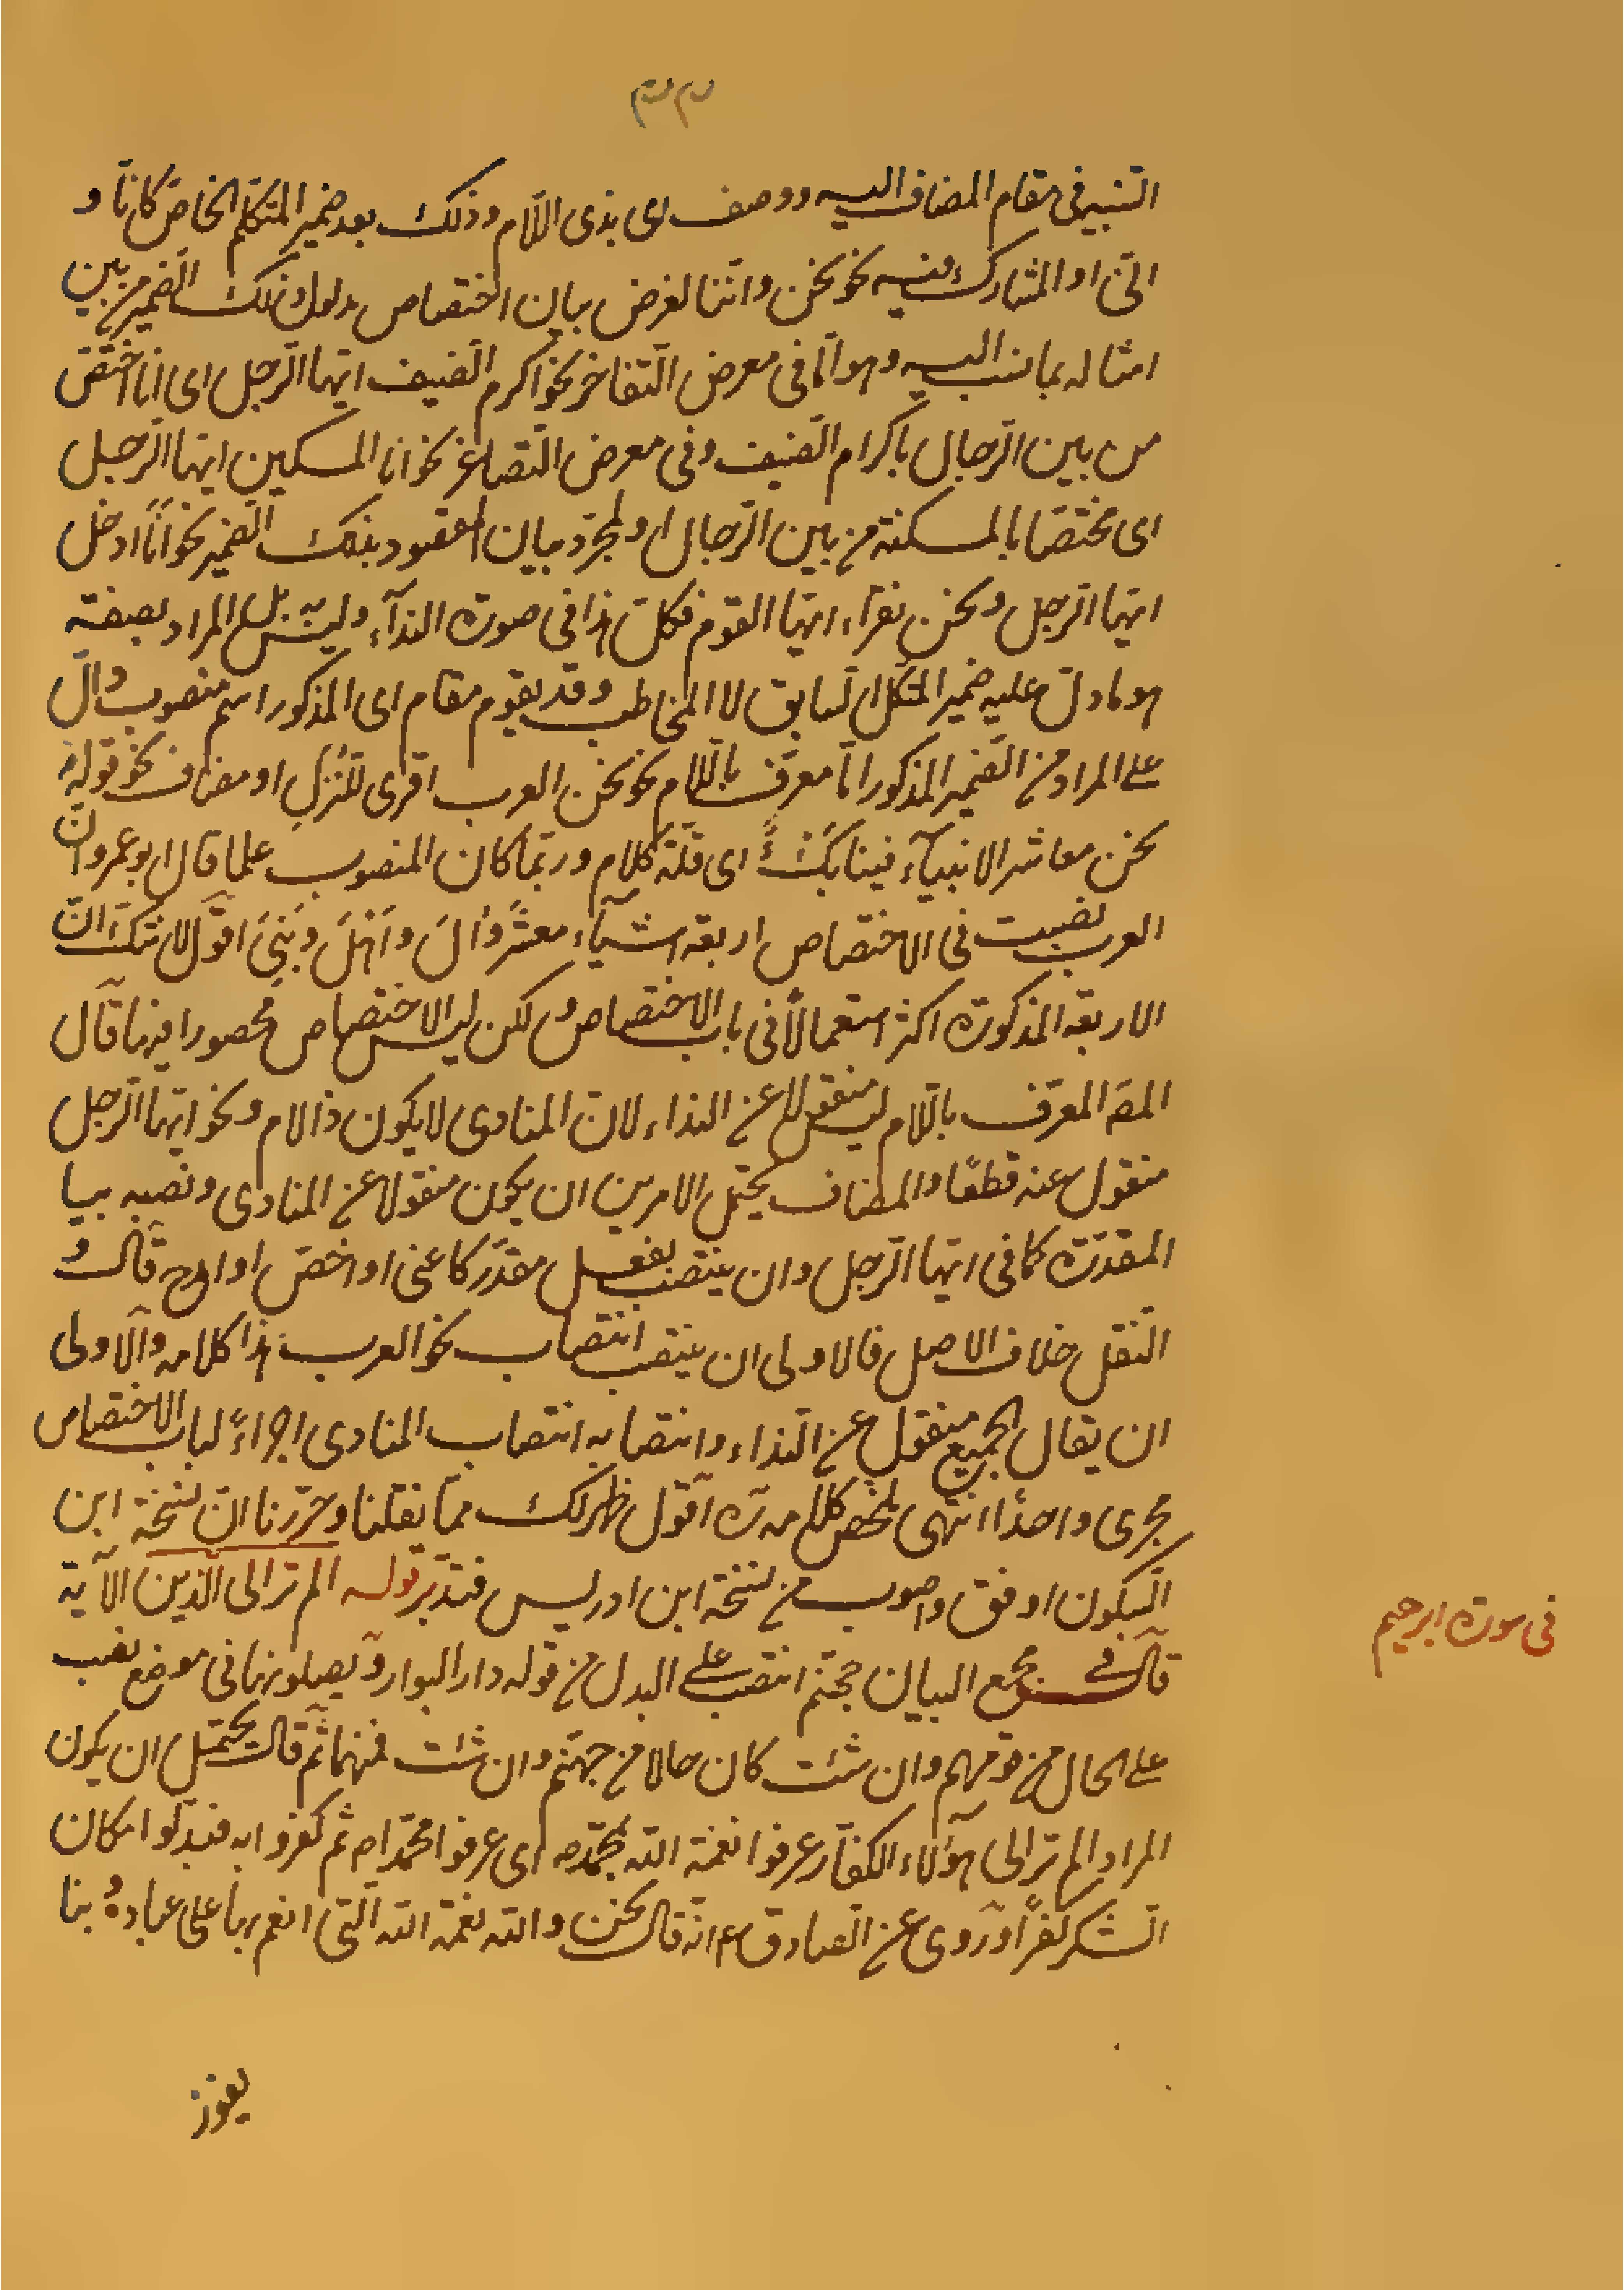 التنبيه فى مقام المضاف اليه ووصف اى بذى اللّام وذلك بعد ضمير المتكلّم الخاصّ كانا و
انّى او المشارك فيه نحو نحن واننا لغرض بيان اختصاص مدلول ذلك الضمير من بين
امثاله بما نسب اليه وهو امّا فى معرض التفاخر نحو اكرم الضيف ايّها الرّجل اى انا اختصّ
من بين الرّجال باكرام الضيف وفى معرض التصاغر نحو انا المسكين ايّها الرّجل
اى مختصّا بالمسكنة من بين الرّجال او لمجرّد بيان المقصود بذلك الضمير نحو انا ادخل
ايّها الرّجل ونحن نقرأ ايّها القوم فكلّ هذا فى صورة النداء وليس المراد بصيغته
هو ما دلّ عليه ضمير المتكلم السّابق لا المخاطب وقد يقوم مقام اى المذكور اسم منصوب دالّ
على المراد من الضمير المذكور امّا معرّف باللّام نحو نحن العرب اقرى للنّزل او مضاف نحو قوله
نحن معاشر الانبيآء فينا بكء اى قلّة كلام وربّما كان المنصوب علما قال ابو عمرو انّ
العرب نصبت فى الاختصاص اربعة اشيآء معشر وال واهل وبنى اقول لا شكّ انّ
الاربعة المذكورة اكثر استعمالا فى باب الاختصاص ولكن ليس الاختصاص محصورا فيها قال
المصّ المعرّف باللّام ليس منقولا عن النداء لانّ المنادى لا يكون ذا لام ونحو ايّها الرّجل
منقول عنه قطعًا والمضاف يحتمل الامرين ان يكون منقولا عن المنادى ونصبه بيا
المقدّرة كما فى ايّها الرّجل وان ينتصب بفعل مقدّر كاعنى او اخصّ او امدح قال و
النقل خلاف الاصل فالاولى ان ينتصب انتصاب نحو العرب هذا كلامه والاولى
ان يقال الجميع منقول عن النداء وانتصابه انتصاب المنادى اجراءً لباب الاختصاص
مجرى واحدًا انتهى ملخّص كلامه ره اقول ظهر لك ممّا نقلنا وحرّرنا انّ نسخة ابن
السكون اوفق واصوب من نسخة ابن ادريس فتدبّر قوله الم تر الى الّذين الآية
قال فى مجمع البيان جهنّم انتصب على البدل من قوله دار البوار ويصلونها فى موضع نصب
على الحال من قومهم وان شئت كان حالا من جهنّم وان شئت فمنهما ثمّ قال يحتمل ان يكون
المراد الم تر الى هؤلاء الكفّار عرفوا نعمة الله بمحمّد ص اى عرفوا محمّدا ص ثم كفروا به فبدّلوا مكان
الشكر كفرًا وروى عن الصّادق ع انّه قال نحن والله نعمة الله الّتى انعم بها على عباده وبنا
يفوز
فى سورة ابرهيم